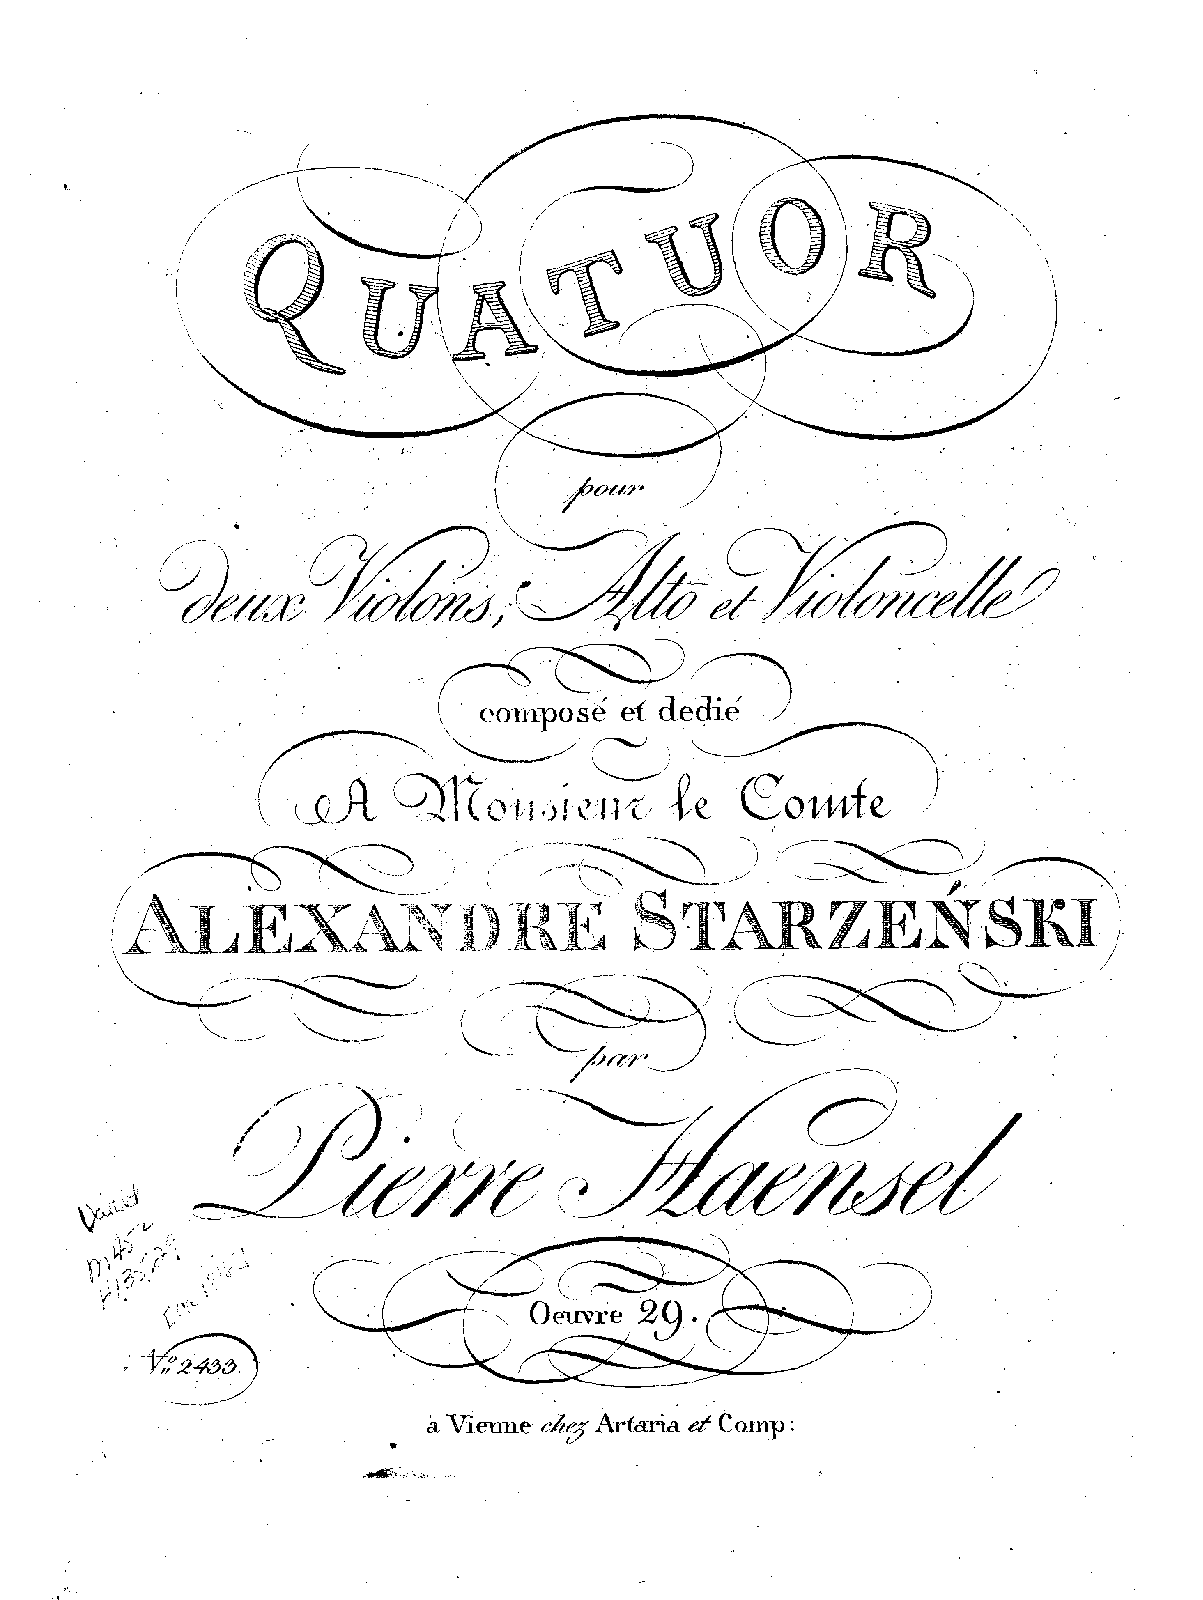 QUATUOR
pour
deux Violons, Alto et Violoncelle
composé et dedié
A Monsieur le Comte
ALEXANDRE STARZEŃSKI
par
Pierre Haensel
Oeuvre 29.
Vº 2433.
à Vienne chez Artaria et Comp: